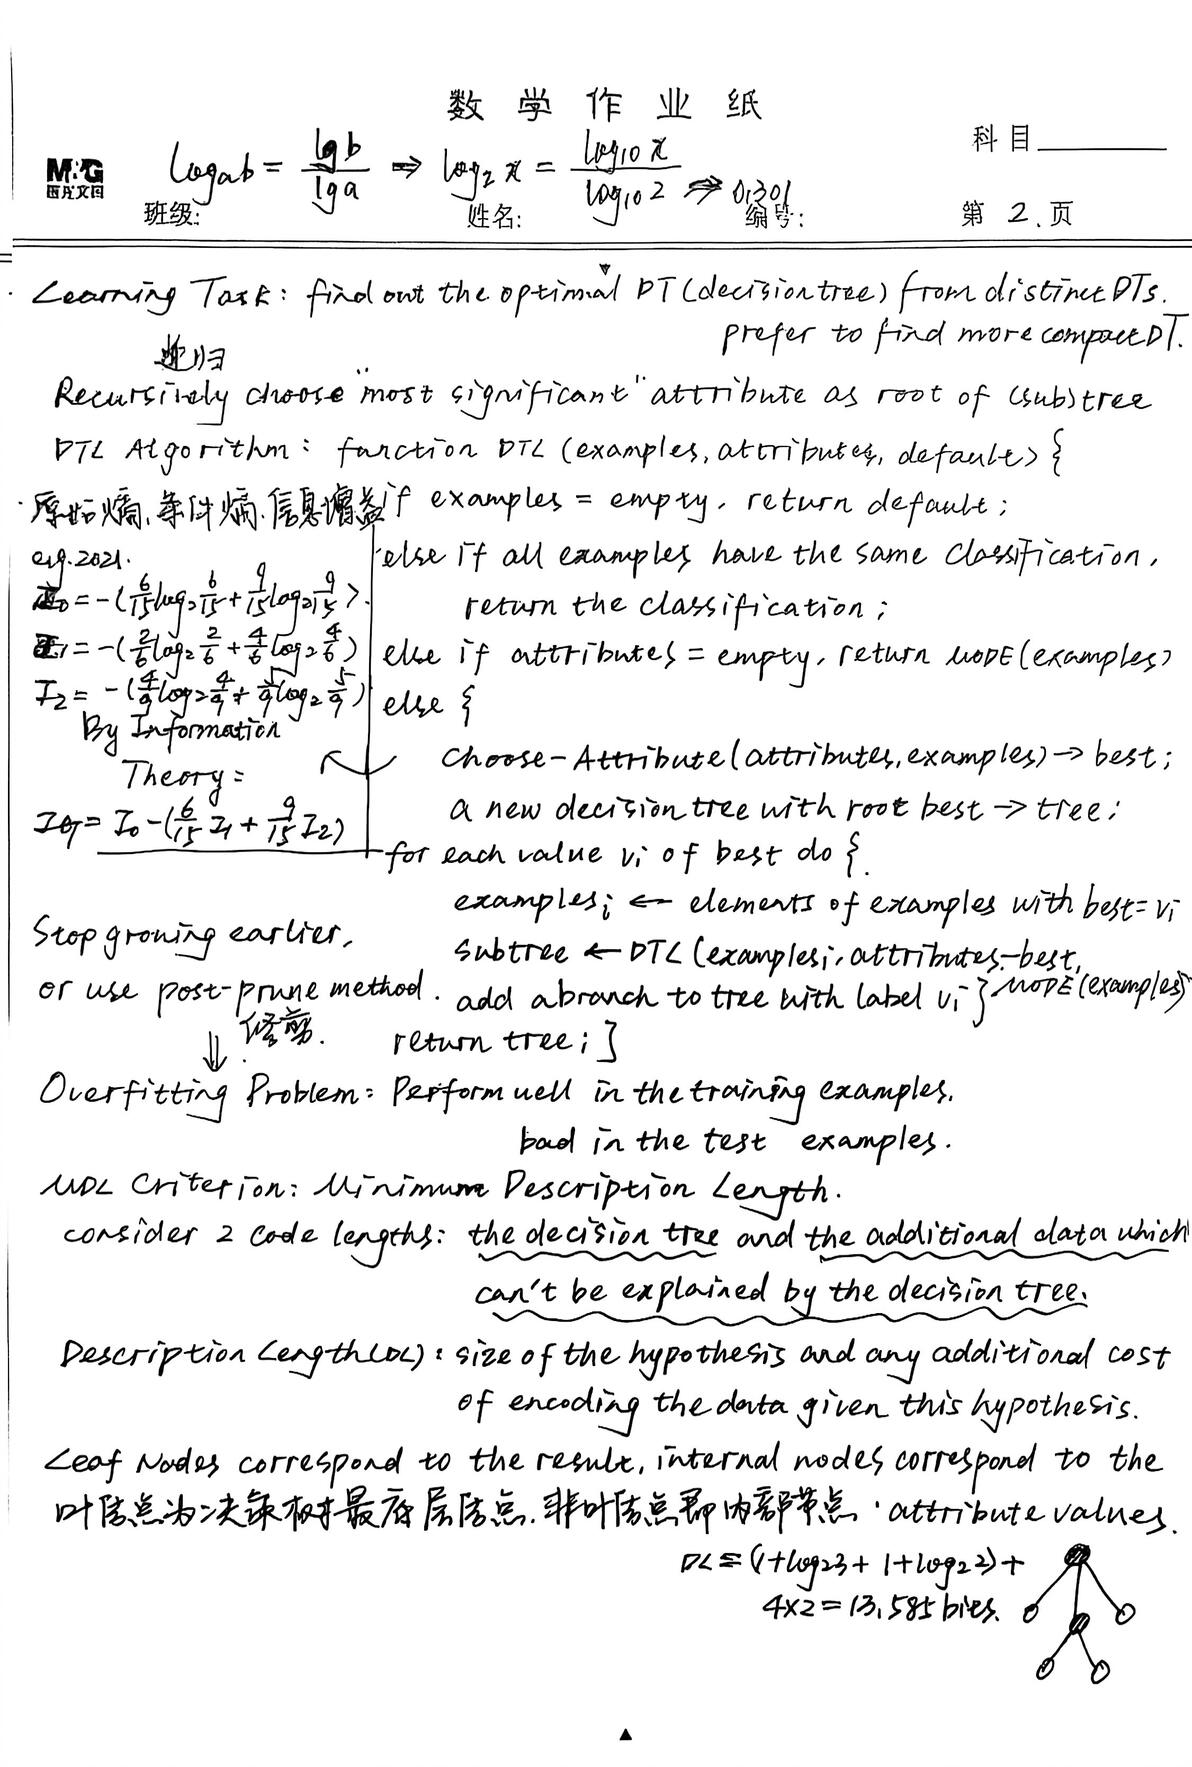 数学作业纸
科目
M&G
晨光文具
logab = lgb/lga ⇒ log₂x = log₁₀x/log₁₀2 ⇒ 0.301
班级: 姓名: 编号: 第 2. 页
Learning Task: find out the optimal DT (decision tree) from distinct DTs.
prefer to find more compact DT.
递归
Recursively choose "most significant" attribute as root of (sub)tree
DTL Algorithm: function DTL (examples, attributes, default) {
原始熵、条件熵、信息增益
if examples = empty, return default;
else if all examples have the same classification,
return the classification;
else if attributes = empty, return MODE(examples)
else {
choose-Attribute(attributes, examples) → best;
a new decision tree with root best → tree;
for each value vi of best do {
examplesi ← elements of examples with best = vi
subtree ← DTL (examplesi, attributes-best,
MODE(examples)
add a branch to tree with label vi }
return tree; }
e.g. 2021.
I₀ = -(6/15 log₂ 6/15 + 9/15 log₂ 9/15).
I₁ = -(2/6 log₂ 2/6 + 4/6 log₂ 4/6)
I₂ = -(4/9 log₂ 4/9 + 5/9 log₂ 5/9)
By Information
Theory:
IG = I₀ - (6/15 I₁ + 9/15 I₂)
Stop growing earlier,
or use post-prune method.
修剪.
⇓
Overfitting Problem: Perform well in the training examples.
bad in the test examples.
MDL Criterion: Minimum Description Length.
consider 2 code lengths: the decision tree and the additional data which
can't be explained by the decision tree.
Description Length(DL): size of the hypothesis and any additional cost
of encoding the data given this hypothesis.
Leaf Nodes correspond to the result, internal nodes correspond to the
attribute values.
叶结点为决策树最底层结点.非叶结点即内部节点.
DL = (1+log₂3 + 1+log₂2) +
4×2 = 13.585 bits.